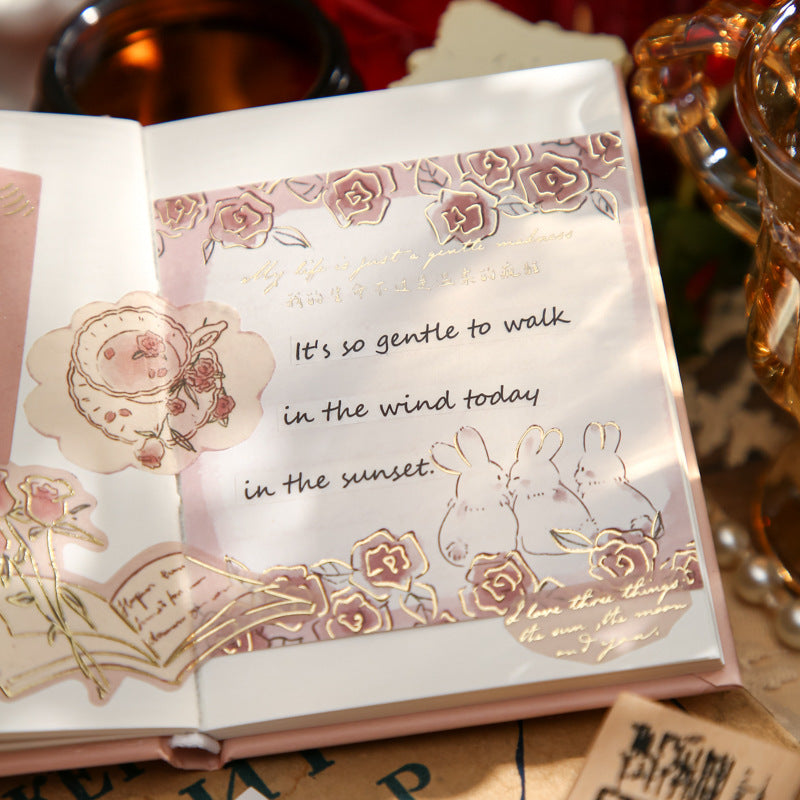 My life is just a gentle madness
我的生命不过是温柔的疯狂
It's so gentle to walk
in the wind today
in the sunset.
I love three things
the sun, the moon
and you.